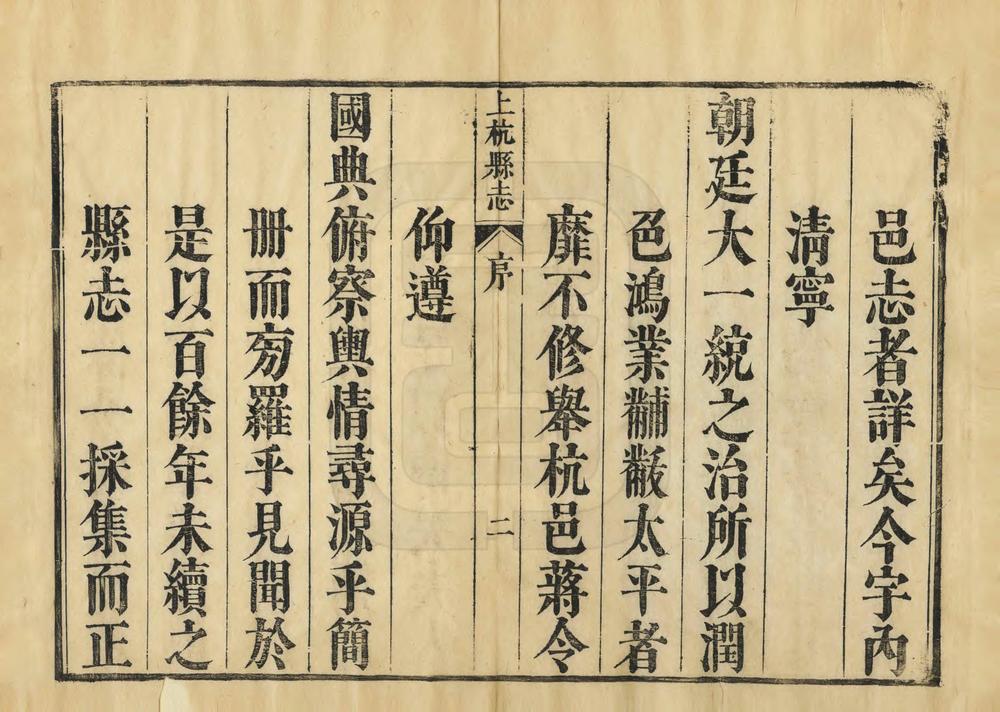 邑志者詳矣今宇內
清寧
朝廷大一統之治所以潤
色鴻業黼黻太平者
靡不修舉杭邑蔣令
上杭縣志 序 二
仰遵
國典俯察輿情尋源乎簡
册而旁羅乎見聞於
是以百餘年未續之
縣志一一採集而正